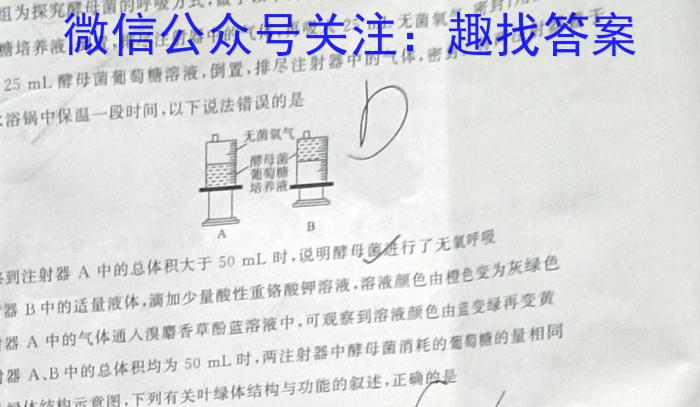 组为探究酵母菌的呼吸方式,做了
微信公众号关注：趣找答案
糖培养液
无菌氧气,密封
25 mL 酵母菌葡萄糖溶液,倒置,排尽注射器中的气体,密
水浴锅中保温一段时间,以下说法错误的是
D
无菌氧气
酵母菌
葡萄糖
培养液
A
B
到注射器 A 中的总体积大于 50 mL 时,说明酵母菌进行了无氧呼吸
器 B 中的适量液体,滴加少量酸性重铬酸钾溶液,溶液颜色由橙色变为灰绿色
器 A 中的气体通入溴麝香草酚蓝溶液中,可观察到溶液颜色由蓝变绿再变黄
器 A、B 中的总体积均为 50 mL 时,两注射器中酵母菌消耗的葡萄糖的量相同
绿体结构示意图,下列有关叶绿体结构与功能的叙述,正确的是